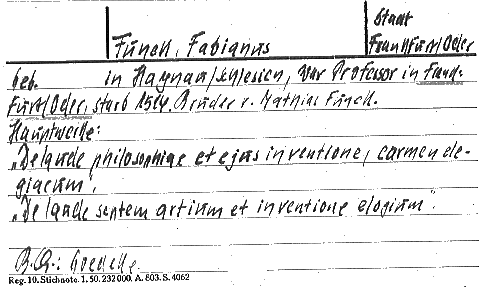 Stadt
Funck, Fabianus
Frankfurt/Oder
geb. in Haynau/Schlesien, war Professor in Frank-
furt/Oder, starb 15 Bruder v. Mathias Funck.
Hauptwerke:
„De laude philosophiae et ejus inventione, carmen ele-
giacum".
„De laude septem artium et inventione elogium".
B.Q.: Goedeke
Reg. 10. Stichnote. 1. 50. 232000. A. 803. S. 4062